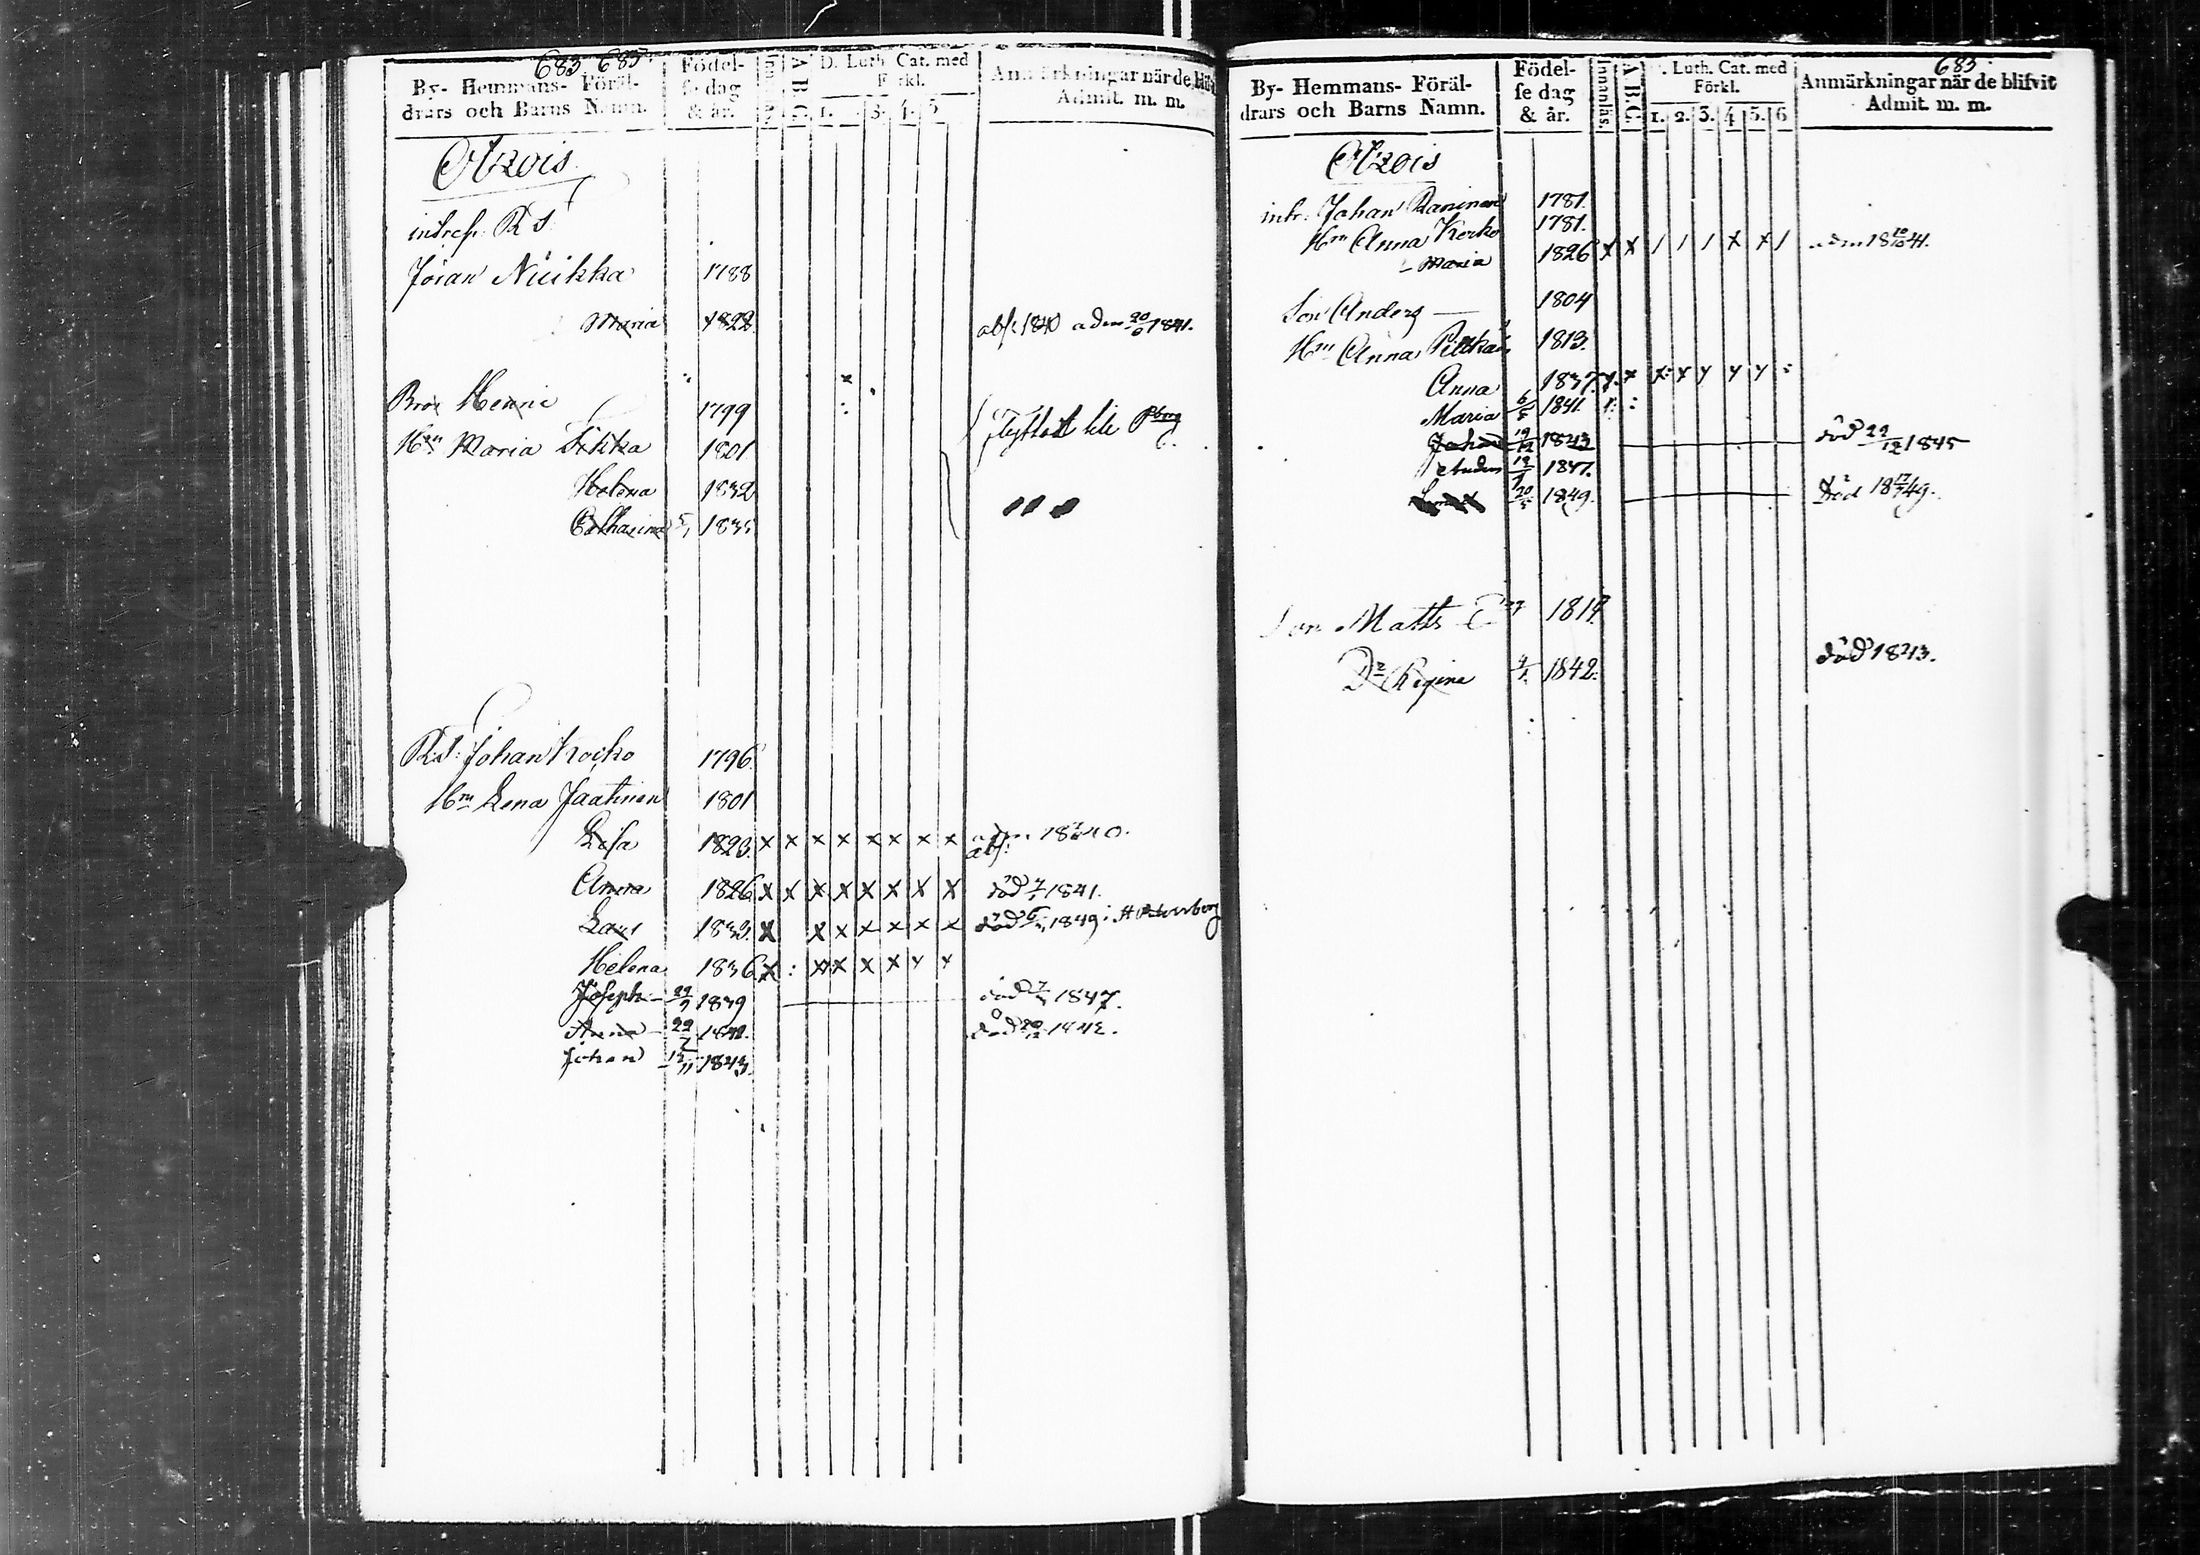 683 683
By- Hemmans- Föräl-
drars och Barns Namn.
Födel-
se dag
& år.
A B C
D. Luth. Cat. med
Förkl.
1. 3. 4. 5
Anmärkningar när de blifvit
Admit. m. m.
intress. R S.
Jöran Niikka 1788
Maria 1822. abs: 1840 adm 20/6 1841.
Bror Henric 1799
Hn Maria Sikka 1801 flyttat till Pborg
Helena 1832
Catharina 5/1 1835
RS: Johan Koiko 1796.
Hru Lena Jaatinen 1801
Lisa 1823. x x x x x x x x
abs:
Anna 1826 x x x x x x x x död 7/1 1841.
Lars 1833. x x x x x x x död 1849 i St Petersborg
Helena 1836 x : x x x x x x
Joseph 1839 död 1847.
Anna 22/7 1842. död 1842.
Johan 1843.
683
By- Hemmans- Föräl-
drars och Barns Namn.
Födel-
se dag
& år.
Innanläs.
A.B.C.
Luth. Cat. med
Förkl.
1. 2. 3. 4 5. 6
Anmärkningar när de blifvit
Admit. m. m.
intr. Johan Raninen 1781.
Hru Anna Kerko 1781.
Maria 1826 x x / / / x x / adm 18 10/10 41.
Son Anders 1804
Hru Anna Pitkän 1813.
Anna 1837
Maria 6/5 1841.
Johan 19/12 1843 död 29/12 1845
Anders 1847.
20/5 1849. död 18 17/7 49.
Son Matts 1819.
Dr Regina 1842. död 1843.